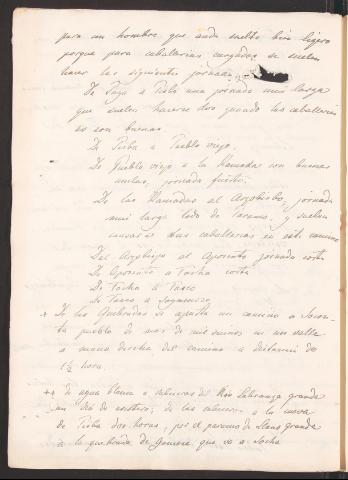 para un hombre que anda suelto bien ligero
porque para caballerias cargadas se suelen
hacer las siguientes jornadas
De a Pisba una jornada mui larga
que suelen hacerse dos quando las caballerias
no son buenas.
De Pisba a Pueblo viejo.
De Pueblo viejo a las llamadas con buenas
mulas, jornada fuerte.
De las llamadas al Arzobispo, jornada
mui larga todo de Paramo, y suelen
cansarse las caballerias en este camino
Del Arzobispo al Aposento jornada corta
De Aposento a Socha corta
De Socha a Tasco
De Tasco a Sogamoso
+ De las Quebradas se aparta un camino a
pueblo de mas de mil en un valle
a mano derecha del camino a distancia de
1½ hora.
++ de agua blanca a cabeceras del Rio Labranza grande
un dia de ; de las cabeceras a la cueva
de Pisba dos horas, por el paramo de llano grande
a la quebrada de que va a Socha